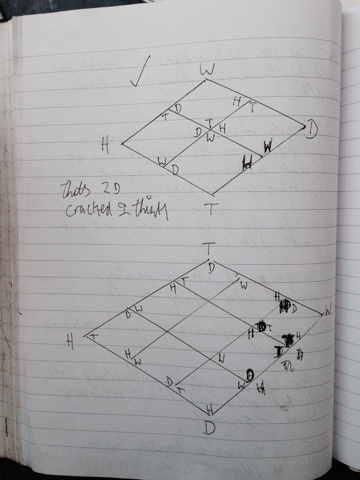 W
T D
H T
T
D H
W
H
D
W D
H W
T
thats 2D
cracked I think
T
D
H T
W
D W
H D
W
H
T
H
T
H W
W
D
T
D
W
H
D